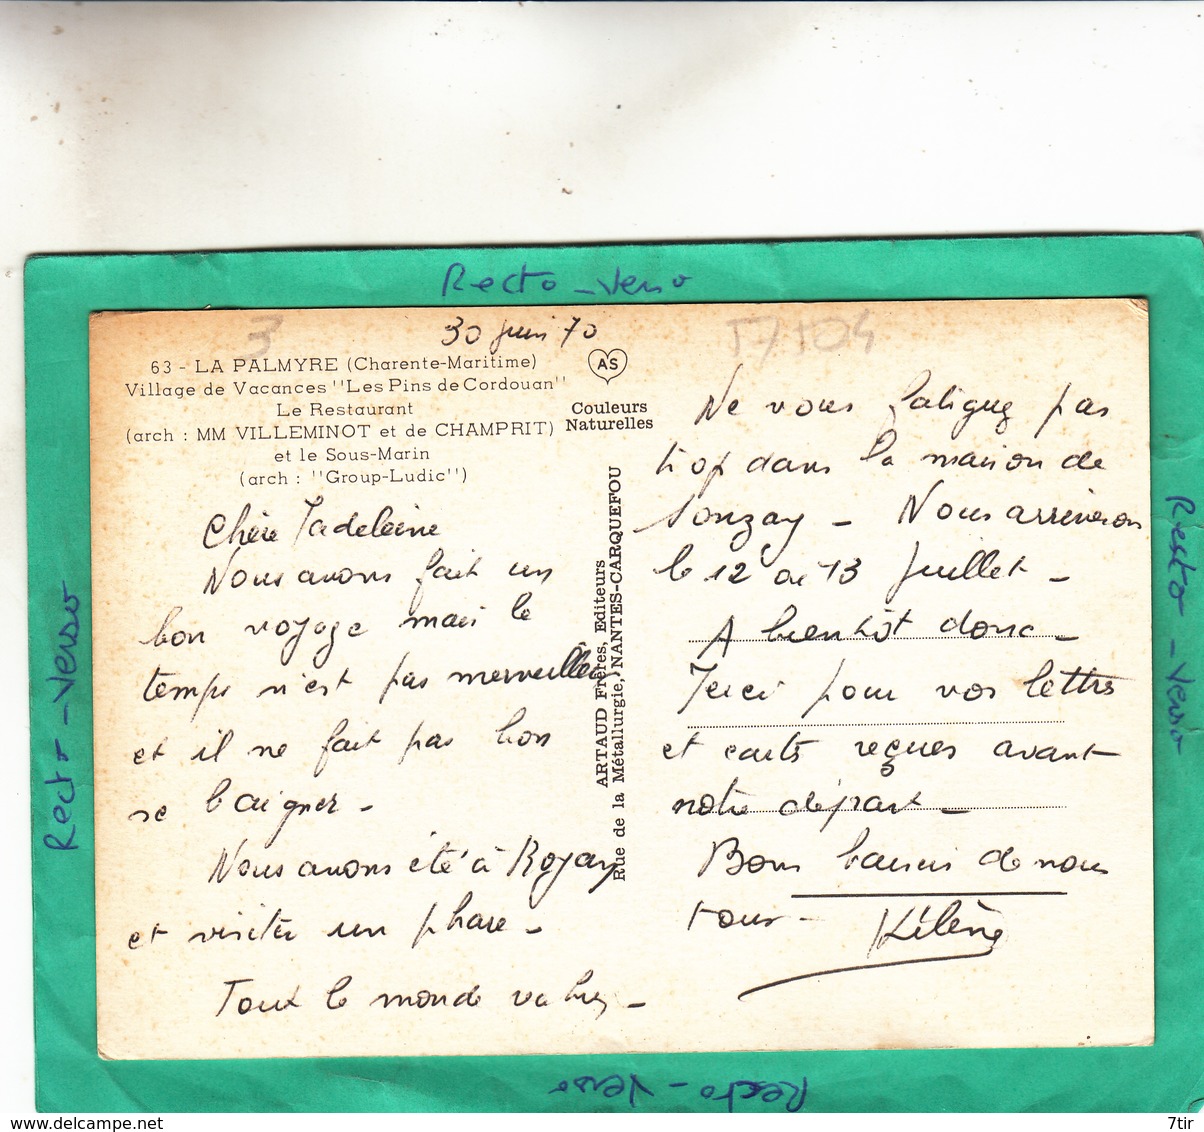 Recto - Verso
3
30 juin 70
17104
63 - LA PALMYRE (Charente-Maritime)
Village de Vacances "Les Pins de Cordouan"
Le Restaurant
(arch : MM VILLEMINOT et de CHAMPRIT)
et le Sous-Marin
(arch : "Group-Ludic")
AS
Couleurs
Naturelles
ARTAUD Frères, Editeurs
Rue de la Métallurgie, NANTES-CARQUEFOU
Chère Madeleine
Nous avons fait un
bon voyage mais le
temps n'est pas merveilleux
et il ne fait pas bon
se baigner -
Nous avons été à Royan
et visiter un phare -
Tout le monde va bien -
Ne vous fatiguez pas
trop dans la maison de
Sonzay - Nous arriverons
le 12 ou 13 Juillet -
A bientôt donc -
Merci pour vos lettres
et cartes reçues avant
notre départ -
Bons baisers de nous
tous - Hélène
Recto - Verso
Recto - Verso
Recto - Verso
delcampe.net
7tir